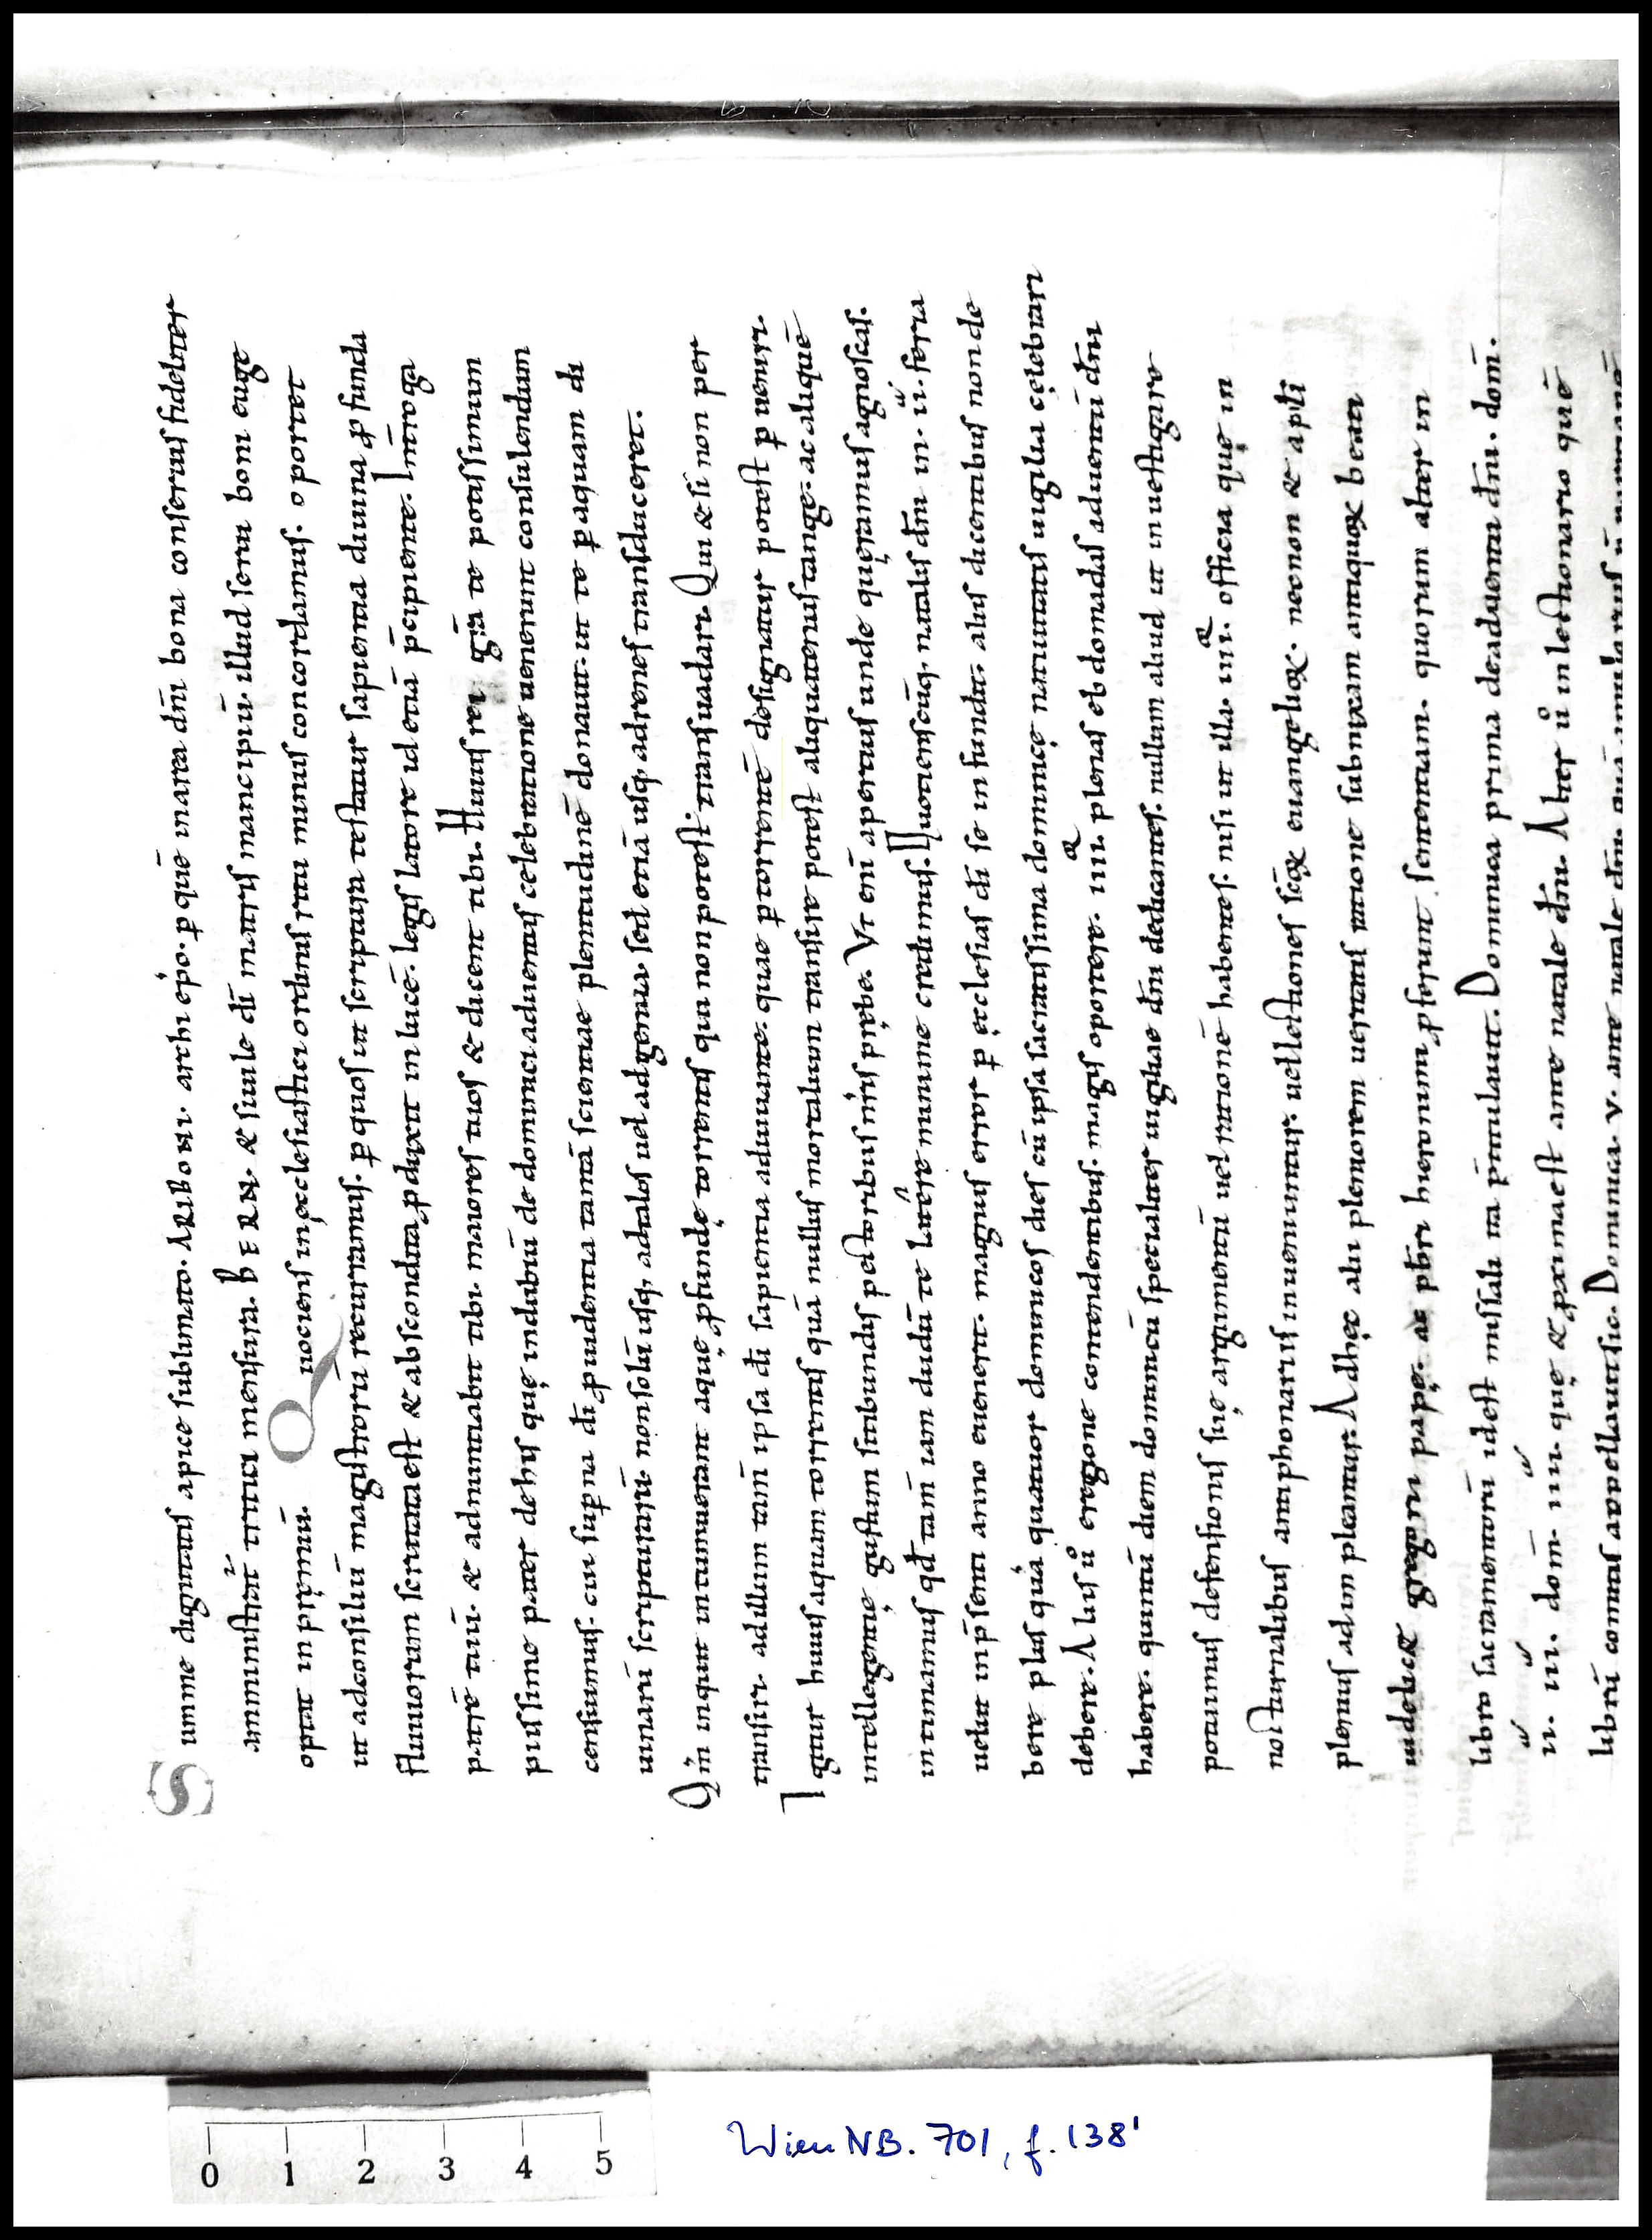 Summe dignitatis apice sublimato. ARIBONI. archi ep̄o. ꝑ quē in area dn̄i bona conseruus fideliter
amministrat tritici mensura. BERN. & simile dī matris mancipiū. illud serui boni euge
optat in p̄miū. Quociens in ęcclesiastici ordinis ritu minus concordamus. oportet
ut ad consiliū magistrorū recurramus. ꝑ quos ut scriptura testatur sapientia diuina ꝓfunda
fluuiorum scrutata est & abscondita ꝓduxit in lucē. legis latore id etiā p̄cipiente. Interroga
patrē tuū. & adnuntiabit tibi. maiores tuos & dicent tibi. Huius rei gr̄a te potissimum
piissime pater de his quę in dubiū de dominici aduentus celebratione uenerunt consulendum
censuimus. cui sup̄na dī ꝓuidentia tantā scientiae plenitudinē donauit. ut te ꝑ aquam di
uinarū scripturarū. non solū usq; ad talos uel ad genua. sed etiā usq; ad renes transduceret.
Qm̄ inquit intumuerant aquę ꝓfundę torrentis qui non potest transuadari. Qui & si non per
transiri. ad illum tam̄ ipsa dī sapientia adiuuante. quae ꝑ torrentē designatur potest ꝑueniri.
Igitur huius aquam torrentis quā nullus mortalium transire potest aliquatenus tange. ac aliquē
intellegentię gustum sitibundis pectoribus nr̄is prębe. Vt enī apertius unde quęramus agnoscas.
intimamus qd̄ tam̄ iam dudū te latere minime credimus. Quotienscūq; natalis dn̄i in .ii. feria
uelut in p̄senti anno euenerit. magnus error ꝑ ęcclesias dī se infundit. aliis dicentibus non de
bere plus quā quatuor dominicos dies cū ipsa sacratissima dominicę natiuitatis uigilia cęlebrari
debere. Aliis u° e regione contendentibus. magis oportere. iiii. plenas ebdomadas aduentū dn̄i
habere. quintū diem dominicū specialiter uigiliae dn̄i dedicantes. nullum aliud ut inuestigare
potuimus defensionis suę argumentū uel rationē habentes. nisi ut illa. iiii. officia quę in
nocturnalibus antiphonariis inueniuntur. uel lectiones scōꝝ euangelioꝝ. necnon & apl̄i
plenius adimpleantur. Ad hęc alii pleniorem ueritatis ratione subnixam antiquoꝝ beati
uidelicet gregorii papę. ac pb̄ri hieronimi ꝓferunt sententiam. quorum alter in
libro sacramentorū id est missali ita p̄titulauit. Dominica prima de aduentu dn̄i. dom̄.
.ii. .iii. dom̄. iiii. quę & ꝓxima est ante natale dn̄i. Alter u° in lectionario quē
librū comitis appellauit sic. Dominica. v. ante natale dn̄i.
0 1 2 3 4 5
Wien NB. 701, f. 138'